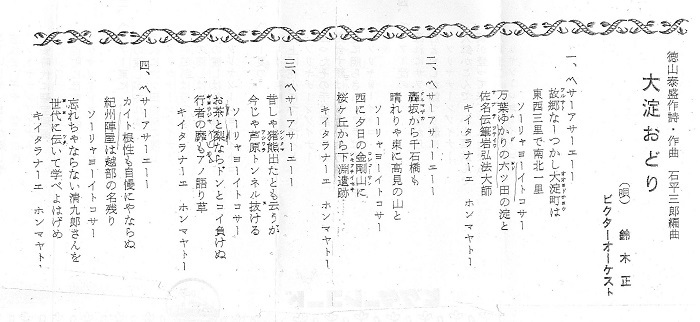 徳山泰盛作詩・作曲　石平三郎編曲
大淀おどり
(唄)　鈴木正
ビクターオーケスト
一、〽サーアサーエニー
故郷なーつかし大淀町は
東西三里で南北一里
ソーリャヨーイトコサー
万葉ゆかりの六ッ田の淀と
佐名伝籬岩弘法大師
キイタラナーエ　ホンマヤトー
二、〽サーアサーエニー
轟坂から千石橋も
晴れりゃ東に高見の山と
ソーリャヨーイトコサー
西に夕日の金剛山に
桜ヶ丘から下淵遺跡
キイタラナーエ　ホンマヤトー
三、〽サーアサーエニー
昔しゃ猪熊出たとも云うが
今じゃ芦原トンネル抜ける
ソーリャヨーイトコサー
お茶と梨ならドンとコイ負けぬ
行者の蹟もアノ語り草
キイタラナーエ　ホンマヤトー
四、〽サーアサーエニー
カイト根性も自慢にやならぬ
紀州陣屋は越部の名残り
ソーリャヨーイトコサー
忘れちゃならない清九郎さんを
世代に伝いて学べよはげめ
キイタラナーエ　ホンマヤトー